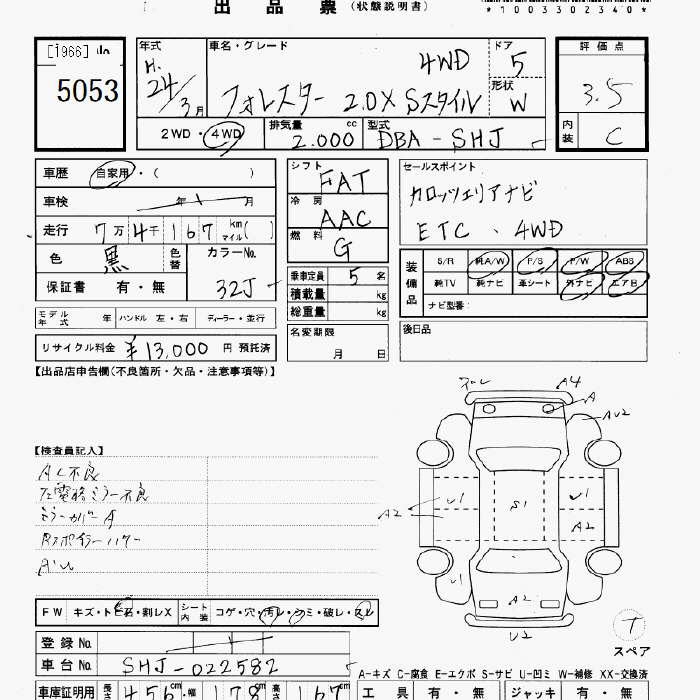 出品票 (状態説明書)
*1003302340*
[1966]
5053
年式 H. 24/3月
車名・グレード フォレスター 2.0X Sスタイル 4WD
ドア 5
形状 W
2WD・4WD
排気量 2.000 cc
型式 DBA-SHJ
評価点 3.5
内装 C
車歴 自家用・( )
車検 年 月
走行 7万4千167 km マイル( )
色 黒 色替
カラーNo. 32J
保証書 有・無
シフト FAT
冷房 AAC
燃料 G
乗車定員 5名
積載量 kg
総重量 kg
名変期限 月 日
セールスポイント
カロッツェリアナビ
ETC、4WD
装備品 S/R 純A/W P/S P/W ABS
純TV 純ナビ 革シート 外ナビ エアB
ナビ型番:
後日品
モデル年式 年 ハンドル 左・右 ディーラー・並行
リサイクル料金 ¥13,000 円 預託済
【出品店申告欄(不良箇所・欠品・注意事項等)】
【検査員記入】
AC不良
左電格ミラー不良
ミラーカバーA
A・U
A4
A
AU2
U1
S1
U1
A2
A2
U1
A2
U2
T
スペア
FW キズ・トビ石・割レX
シート内装 コゲ・穴・汚レ・シミ・破レ・スレ
登録No.
車台No. SHJ-022582
A-キズ C-腐食 E-エクボ S-サビ U-凹ミ W-補修 XX-交換済
車庫証明用 長さ 456cm 幅 178cm 高さ 167cm
工具 有・無 ジャッキ 有・無